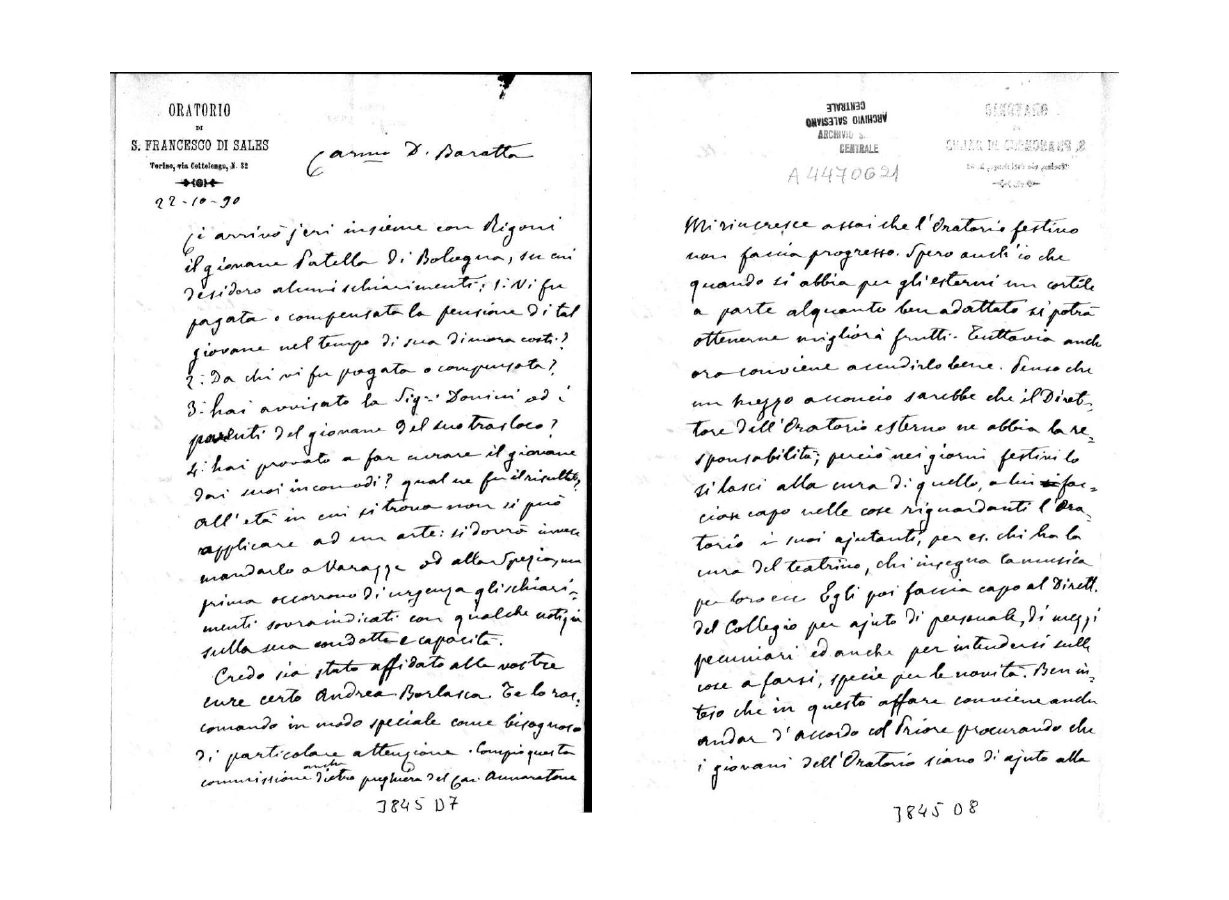 ORATORIO
DI
S. FRANCESCO DI SALES
Torino, via Cottolengo, N. 32
22-10-90
Carmo D. Baratta
Ci arrivò jeri insieme con Rigoni
il giovane Patella di Bologna, su cui
desidero alcuni schiarimenti; 1: Vi fu
pagata o compensata la pensione di tal
giovane nel tempo di sua dimora costì?
2: Da chi vi fu pagata o compensata?
3: hai avvisato la Sigra Donini ed i
parenti del giovane del suo trasloco?
4: hai provato a far curare il giovane
dai suoi incomodi? qual ne fu il risultato,
all'età in cui si trova non si può
applicare ad un arte: si dovrà invece
mandarlo a Varazze od alla Spezia, ma
prima occorrono di urgenza gli schiari=
menti sovraindicati con qualche notizia
sulla sua condotta e capacità.
Credo sia stato affidato alle vostre
cure certo Andrea Borlasca. Te lo rac=
comando in modo speciale come bisognoso
di particolare attenzione. Compio questa
commissione anche dietro preghiera del Can. Annaratone
3845 D7
ARCHIVIO SALESIANO
CENTRALE
ARCHIVIO S.
CENTRALE
A4470621
Mi rincresce assai che l'Oratorio festivo
non faccia progresso. Spero anch'io che
quando si abbia per gli esterni un cortile
a parte alquanto ben adattato si potrà
ottenerne migliori frutti. Tuttavia anche
ora conviene accudirlo bene. Penso che
un mezzo acconcio sarebbe che il Diret=
tore dell'Oratorio esterno ne abbia la re=
sponsabilità; perciò nei giorni festivi lo
si lasci alla cura di quello, a lui fac=
cian capo nelle cose riguardanti l'Ora=
torio i suoi ajutanti, per es. chi ha la
cura del teatrino, chi insegna la musica
per loro ecc. Egli poi faccia capo al Dirett.
del Collegio per ajuto di personale, di mezzi
pecuniari ed anche per intendersi sulle
cose a farsi, specie per le novità. Ben in=
teso che in questo affare conviene anche
andar d'accordo col Priore procurando che
i giovani dell'Oratorio siano di ajuto alla
3845 D8